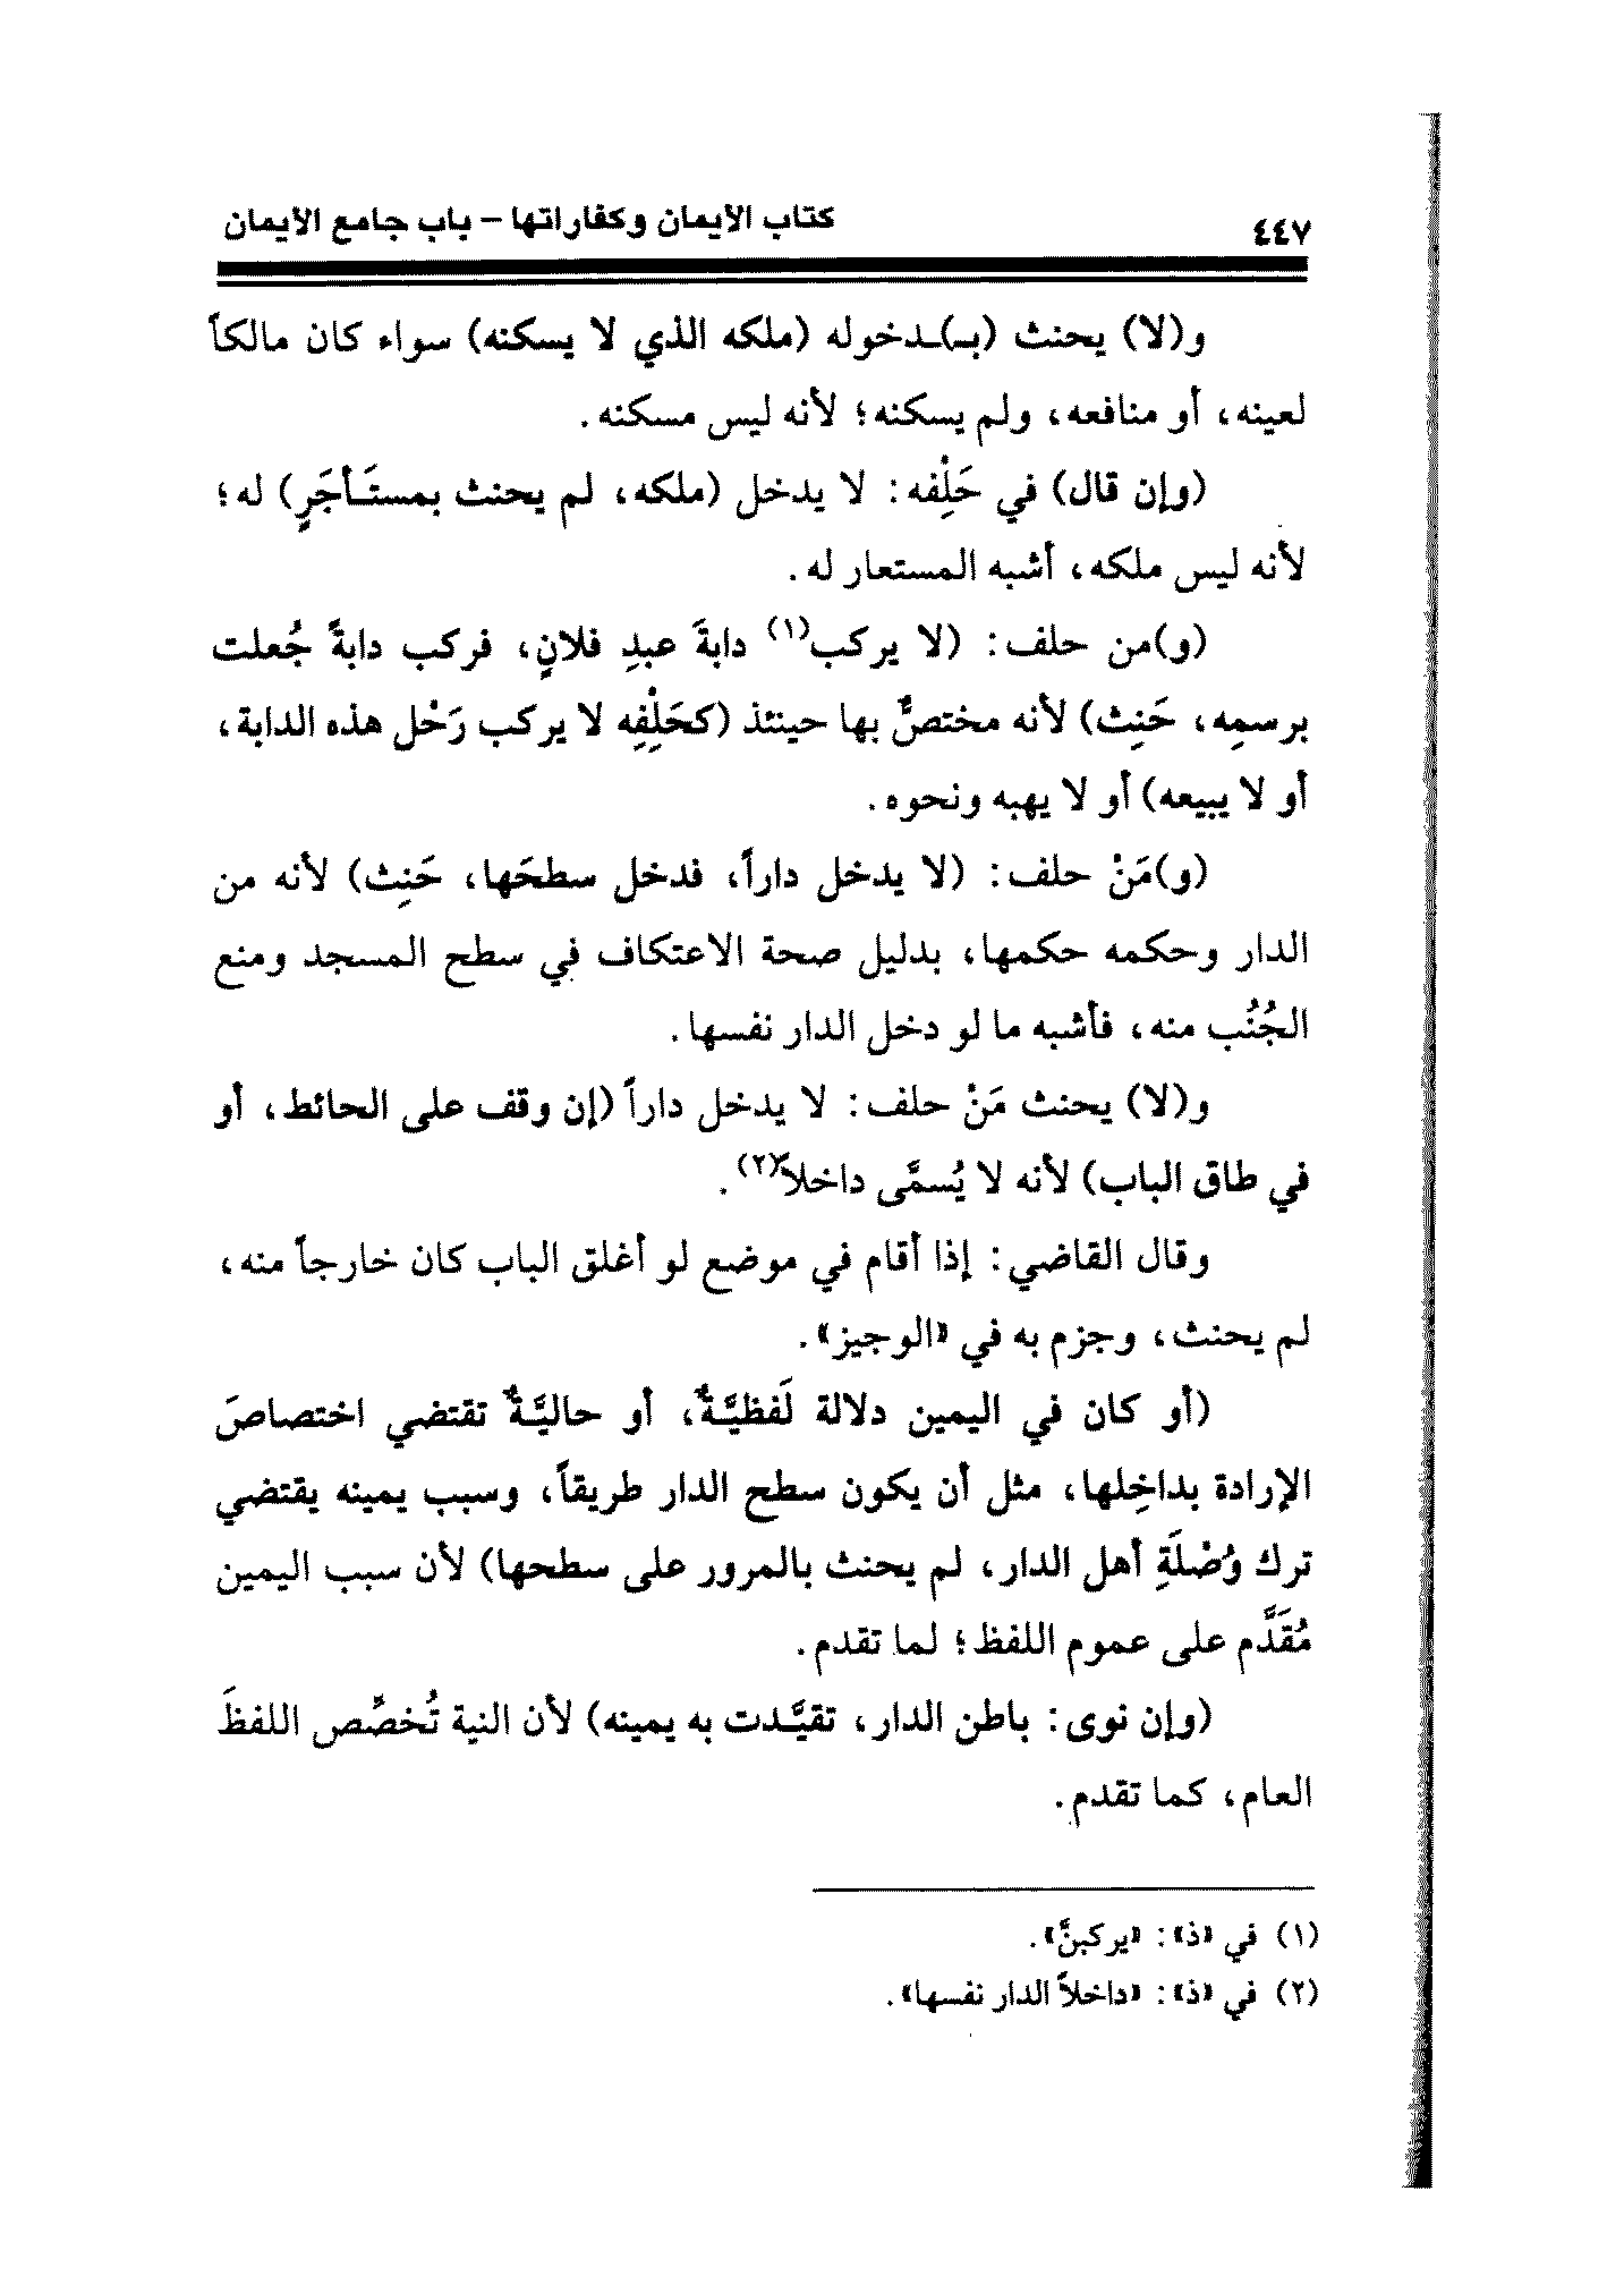 ٤٤٧
كتاب الأيمان وكفاراتها – باب جامع الأيمان
و(لا) يحنث (بـ)ـدخوله (ملكه الذي لا يسكنه) سواء كان مالكاً
لعينه، أو منافعه، ولم يسكنه؛ لأنه ليس مسكنه.
(وإن قال) في حَلِْفه: لا يدخل (ملكه، لم يحنث بمستَـأجَرٍ) له؛
لأنه ليس ملكه، أشبه المستعار له.
(و)من حلف: (لا يركب(١) دابةَ عبدِ فلانٍ، فركب دابةً جُعلت
برسمِه، حَنِث) لأنه مختصٌّ بها حينئذ (كحَلِْفِه لا يركب رَحْل هذه الدابة،
أو لا يبيعه) أو لا يهبه ونحوه.
(و)مَنْ حلف: (لا يدخل داراً، فدخل سطحَها، حَنِث) لأنه من
الدار وحكمه حكمها، بدليل صحة الاعتكاف في سطح المسجد ومنع
الجُنُب منه، فأشبه ما لو دخل الدار نفسها.
و(لا) يحنث مَنْ حلف: لا يدخل داراً (إن وقف على الحائط، أو
في طاق الباب) لأنه لا يُسمَّى داخلاً(٢).
وقال القاضي: إذا أقام في موضع لو أغلق الباب كان خارجاً منه،
لم يحنث، وجزم به في «الوجيز».
(أو كان في اليمين دلالة لَفظيَّـةٌ، أو حاليَّـةٌ تقتضي اختصاصَ
الإرادة بداخِلها، مثل أن يكون سطح الدار طريقاً، وسبب يمينه يقتضي
ترك وُصْلَةِ أهل الدار، لم يحنث بالمرور على سطحها) لأن سبب اليمين
مُقَدَّم على عموم اللفظ؛ لما تقدم.
(وإن نوى: باطن الدار، تقيَّـدت به يمينه) لأن النية تُخصِّص اللفظَ
العام، كما تقدم.
(١) في «ذ»: «يركبنَّ».
(٢) في «ذ»: «داخلاً الدار نفسها».